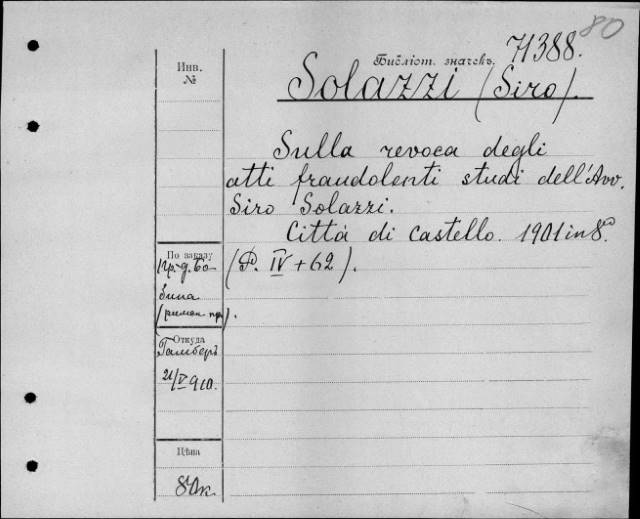 80
Библіот. значекъ. 71388.
Solazzi (Siro).
Инв.
№
Sulla revoca degli
atti fraudolenti studi dell'Avv.
Siro Solazzi.
Città di Castello. 1901 in 8°.
(P. IV + 62).
По заказу
пр. д. Бо-
(римск. пр).
Откуда
Гамберъ
21/V 910.
Цѣна